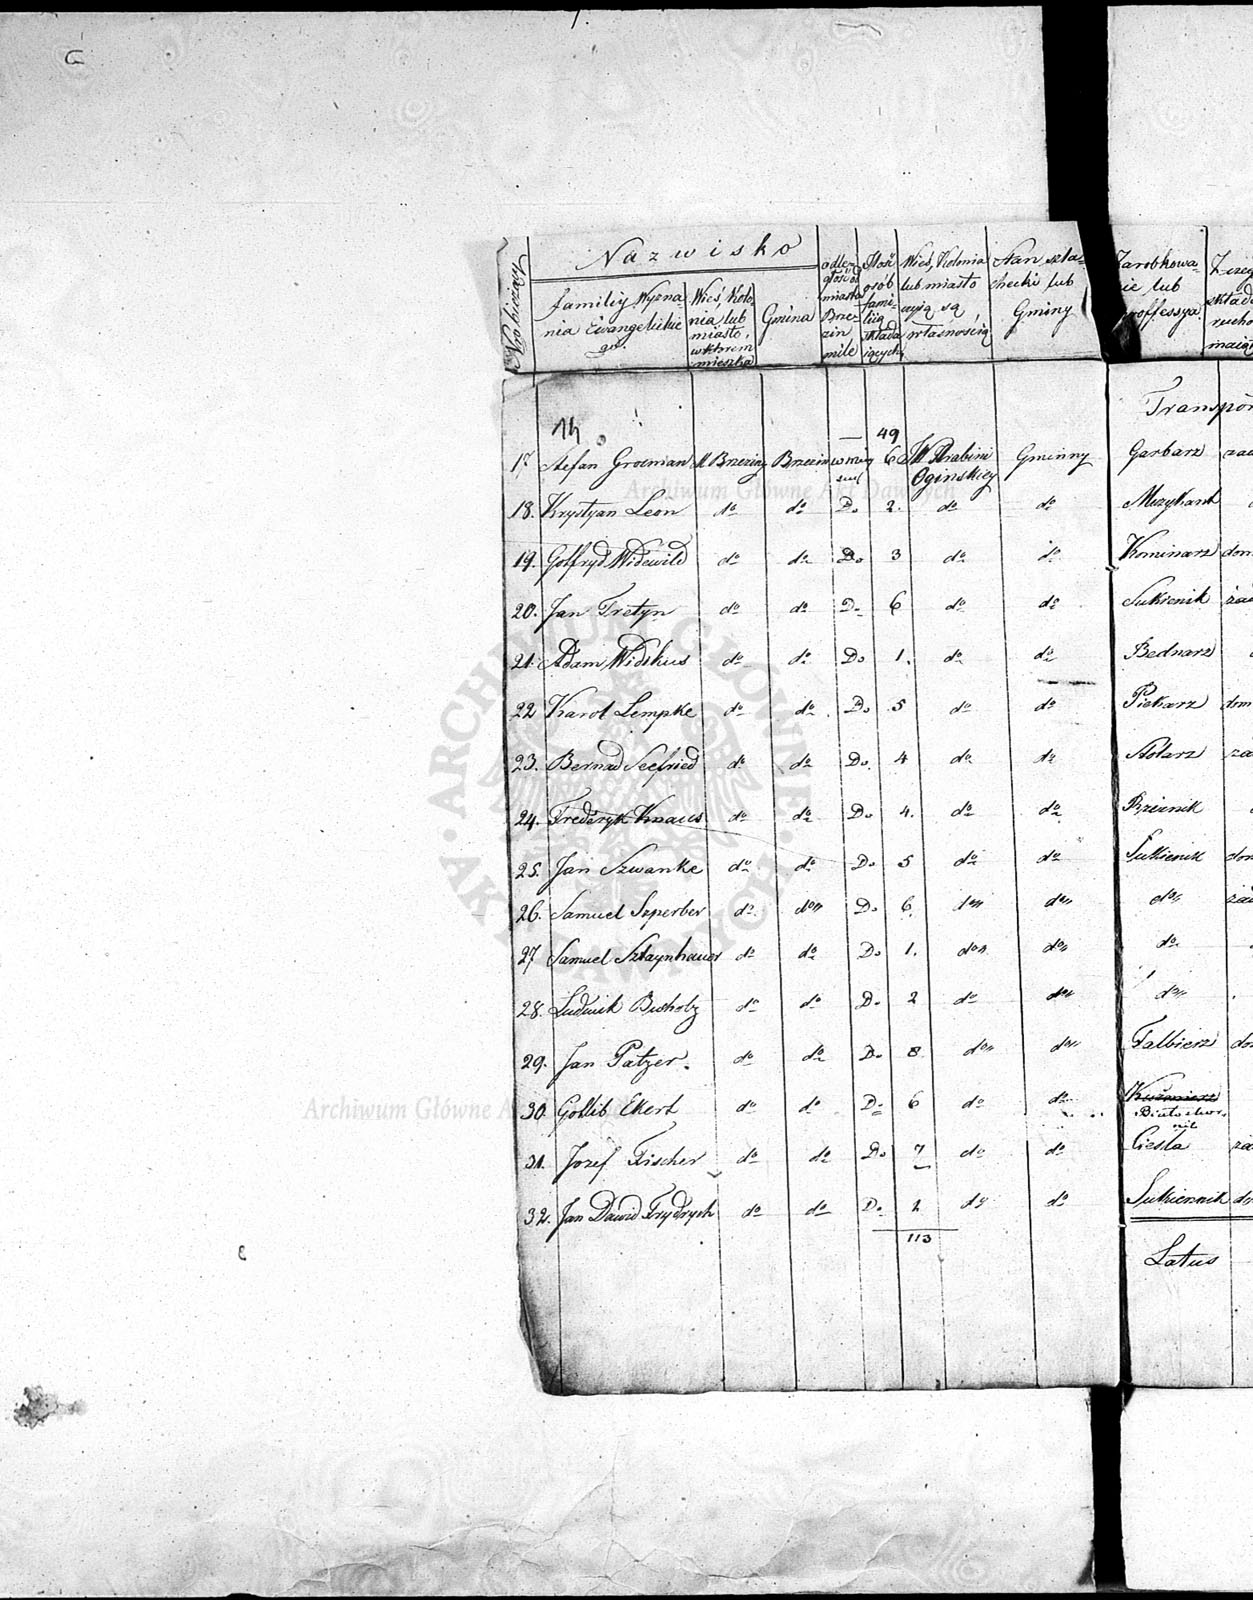 Nro bieżący
Nazwisko
familiy Wyzna
nia Ewangelickie
go.
Wieś, Kolo-
nia lub
miasto,
w ktorem
mieszka
Gmina
odle-
głość od
miasta
Brze-
zin
mile
Ilość
osób
fami-
lią
składa
iących
Wieś, Kolonia
lub miasto
czyią są
własnością
Stan szla-
checki lub
Gminy
Zarobkowa-
nie lub
proffessya
składa
rucho
mając
Transpo
49
17 Stefan Grocman M Brzeziny Brzezin w miey scu 6 JW Hrabini Gminny Garbarz
Oginskiey
18. Krystyan Leon do do Do 2. do do Muzykant
19. Gotfryd Widewild do do Do 3 do do Kominarz dom
20. Jan Tretyn do do Do 6 do do Sukienik żad
21. Adam Widskus do do Do 1. do do Bednarz
22 Karol Lempke do do Do 5 do do Piekarz dom
23. Bernad Seefried do do Do. 4 do do Stolarz żad
24. Frederyk Knaus do do Do 4. do do Rzeznik
25. Jan Szwanke do do Do 5 do do Sukienik dom
26. Samuel Szperber do do Do 6. do do do żad
27 Samuel Sztaynhauer do do Do 1. do do do
28. Ludwik Busholz do do Do. 2 do do do
29. Jan Patzer. do do Do 8 do do Falbierz do
30 Gottlib Ekert do do Do 6 do do Kusmierz
Białoskor
nik
31. Jozef Fischer do do Do 7 do do Ciesla żą
32. Jan Dawid Frydrych do do Do 2 do do Sukiennik do
113
Latus
ARCHIWUM GŁÓWNE AKT DAWNYCH
Archiwum Główne Akt Dawnych
Archiwum Główne A